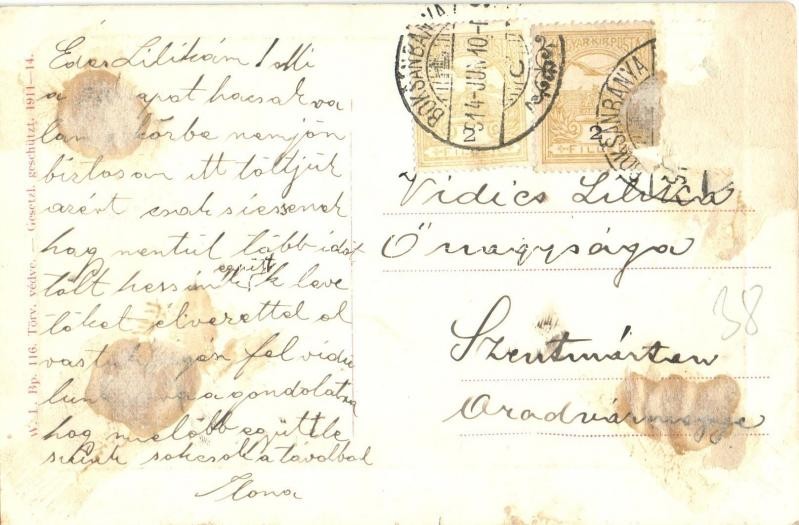 Édes Lilikám! Mi
a apat hacsak va
lami közbe nem jön
biztosan itt töltjük
azért csak siessenek
hog mentül több időt
tölt hessünk együtt leve
lüket élvezettel ol
vastuk fel vidu
lunk a gondolatra
hog mielőbb együtt le
szünk sok csók a távolból
Ilona
W. L. Bp. 116. Törv. védve. — Gesetzl. geschützt. 1911—14.
BOKSÁNBÁNYA
914 JUN 10
MAGYAR KIR. POSTA
2
FILLÉR
2
FILLÉR
BOKSÁNBÁNYA
Vidics Lilica
Őnagysága
Szentmárton
Aradvármegye
38